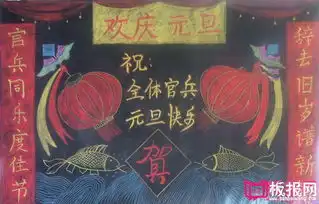 欢庆元旦
官兵同乐度佳节
祝:
全体官兵
元旦快乐
贺
辞去旧岁谱新
板报网